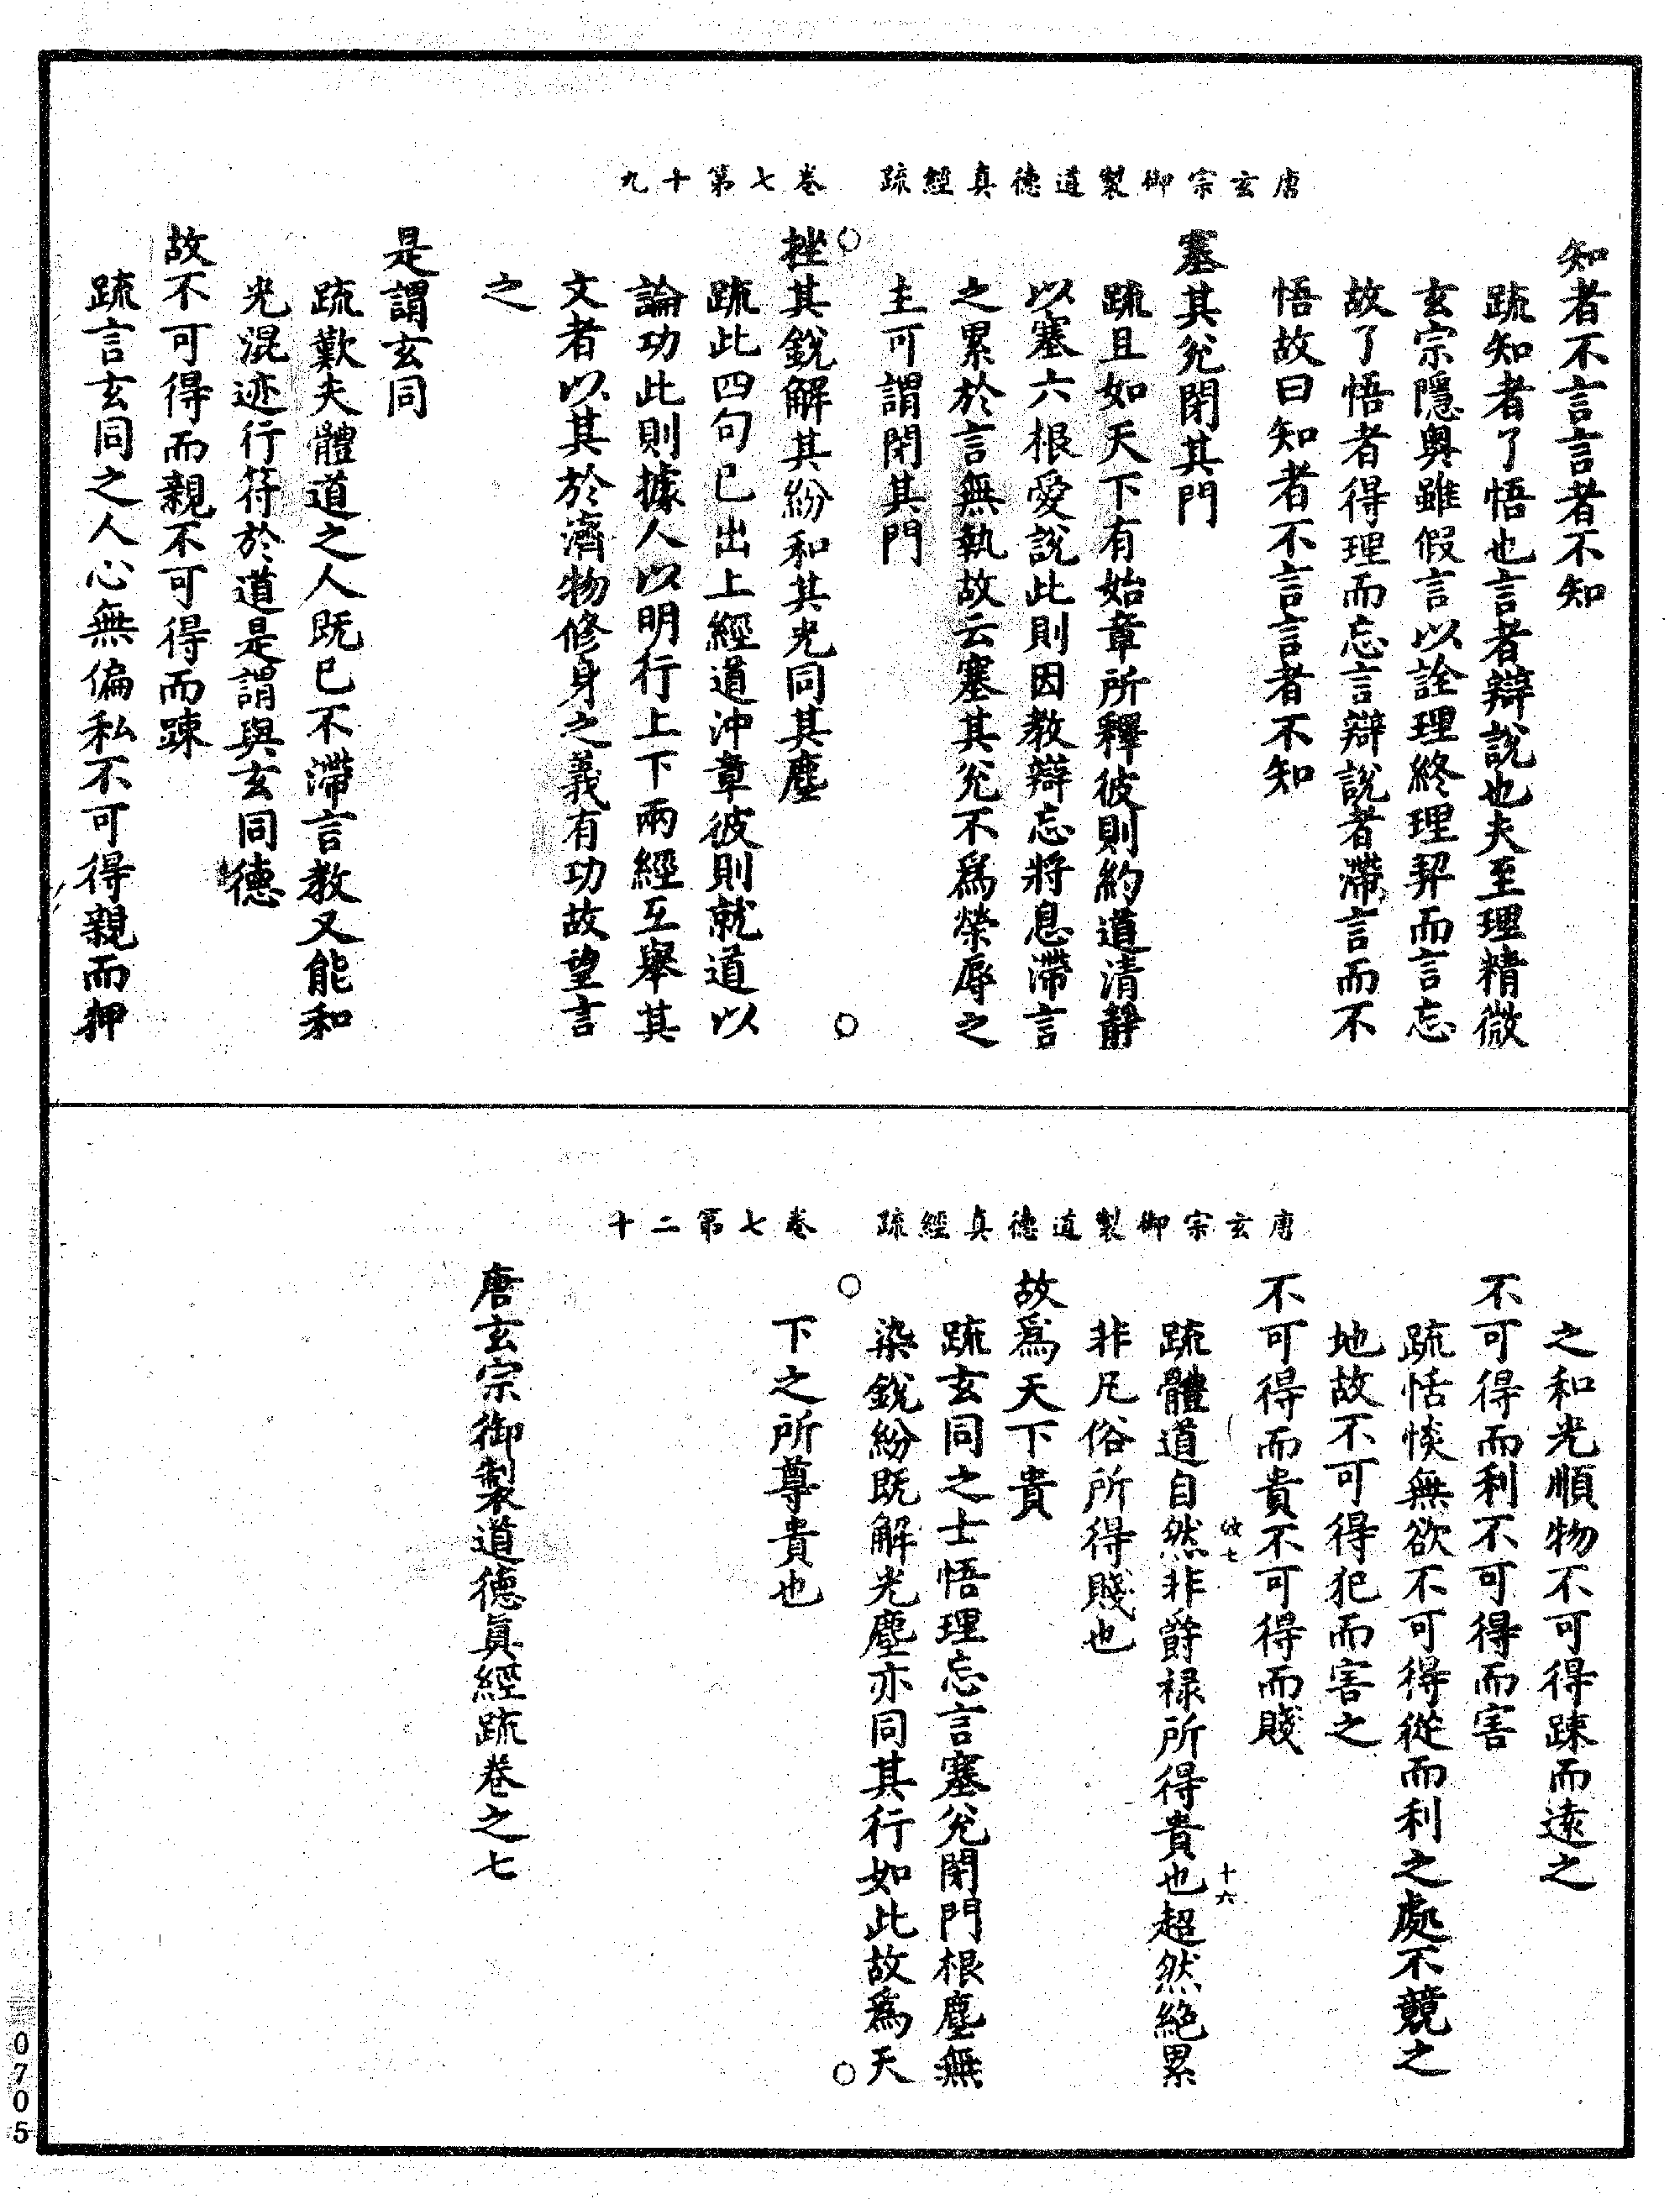 唐玄宗御製道德真經疏　卷七第十九
知者不言言者不知
疏知者了悟也言者辯說也夫至理精微
玄宗隱奧雖假言以詮理終理契而言忘
故了悟者得理而忘言辯說者滯言而不
悟故曰知者不言言者不知
塞其兊閉其門
疏且如天下有始章所釋彼則約道清靜
以塞六根愛說此則因教辯忘將息滯言
之累於言無執故云塞其兊不爲榮辱之
主可謂閉其門
挫其銳解其紛和其光同其塵
疏此四句已出上經道沖章彼則就道以
論功此則據人以明行上下兩經互舉其
文者以其於濟物修身之義有功故望言
之
是謂玄同
疏歎夫體道之人既已不滯言教又能和
光混迹行符於道是謂與玄同德
故不可得而親不可得而踈
疏言玄同之人心無偏私不可得親而狎
唐玄宗御製道德真經疏　卷七第二十
之和光順物不可得踈而遠之
不可得而利不可得而害
疏恬惔無欲不可得從而利之處不競之
地故不可得犯而害之
不可得而貴不可得而賤
彼七　十六
疏體道自然非爵祿所得貴也超然絕累
非凡俗所得賤也
故爲天下貴
疏玄同之士悟理忘言塞兊閉門根塵無
染銳紛既解光塵亦同其行如此故爲天
下之所尊貴也
唐玄宗御製道德眞經疏卷之七
0705